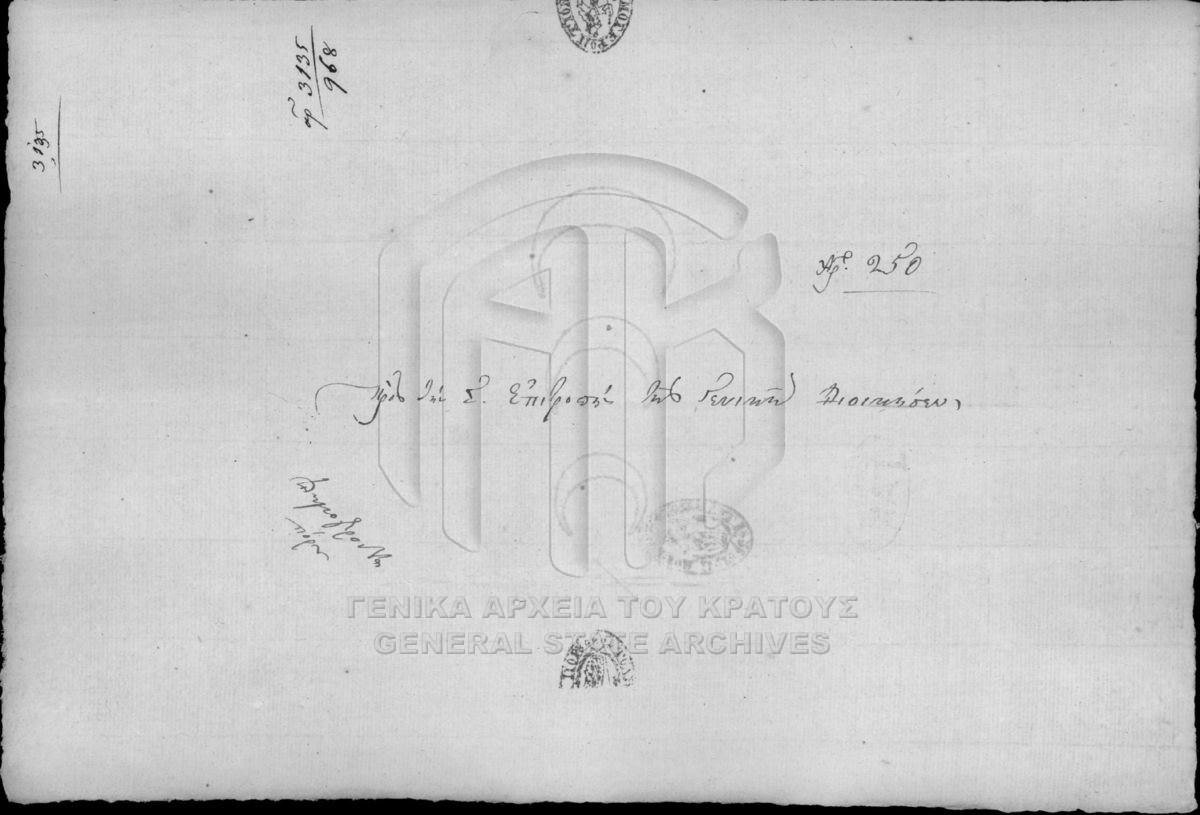 ἀρ 3135
968
3135
Ἀρ. 250
Πρὸς τὴν Σ. Ἐπιτροπὴν τῆς Γενικῆς Διοικήσεως
ΓΕΝΙΚΑ ΑΡΧΕΙΑ ΤΟΥ ΚΡΑΤΟΥΣ
GENERAL STATE ARCHIVES